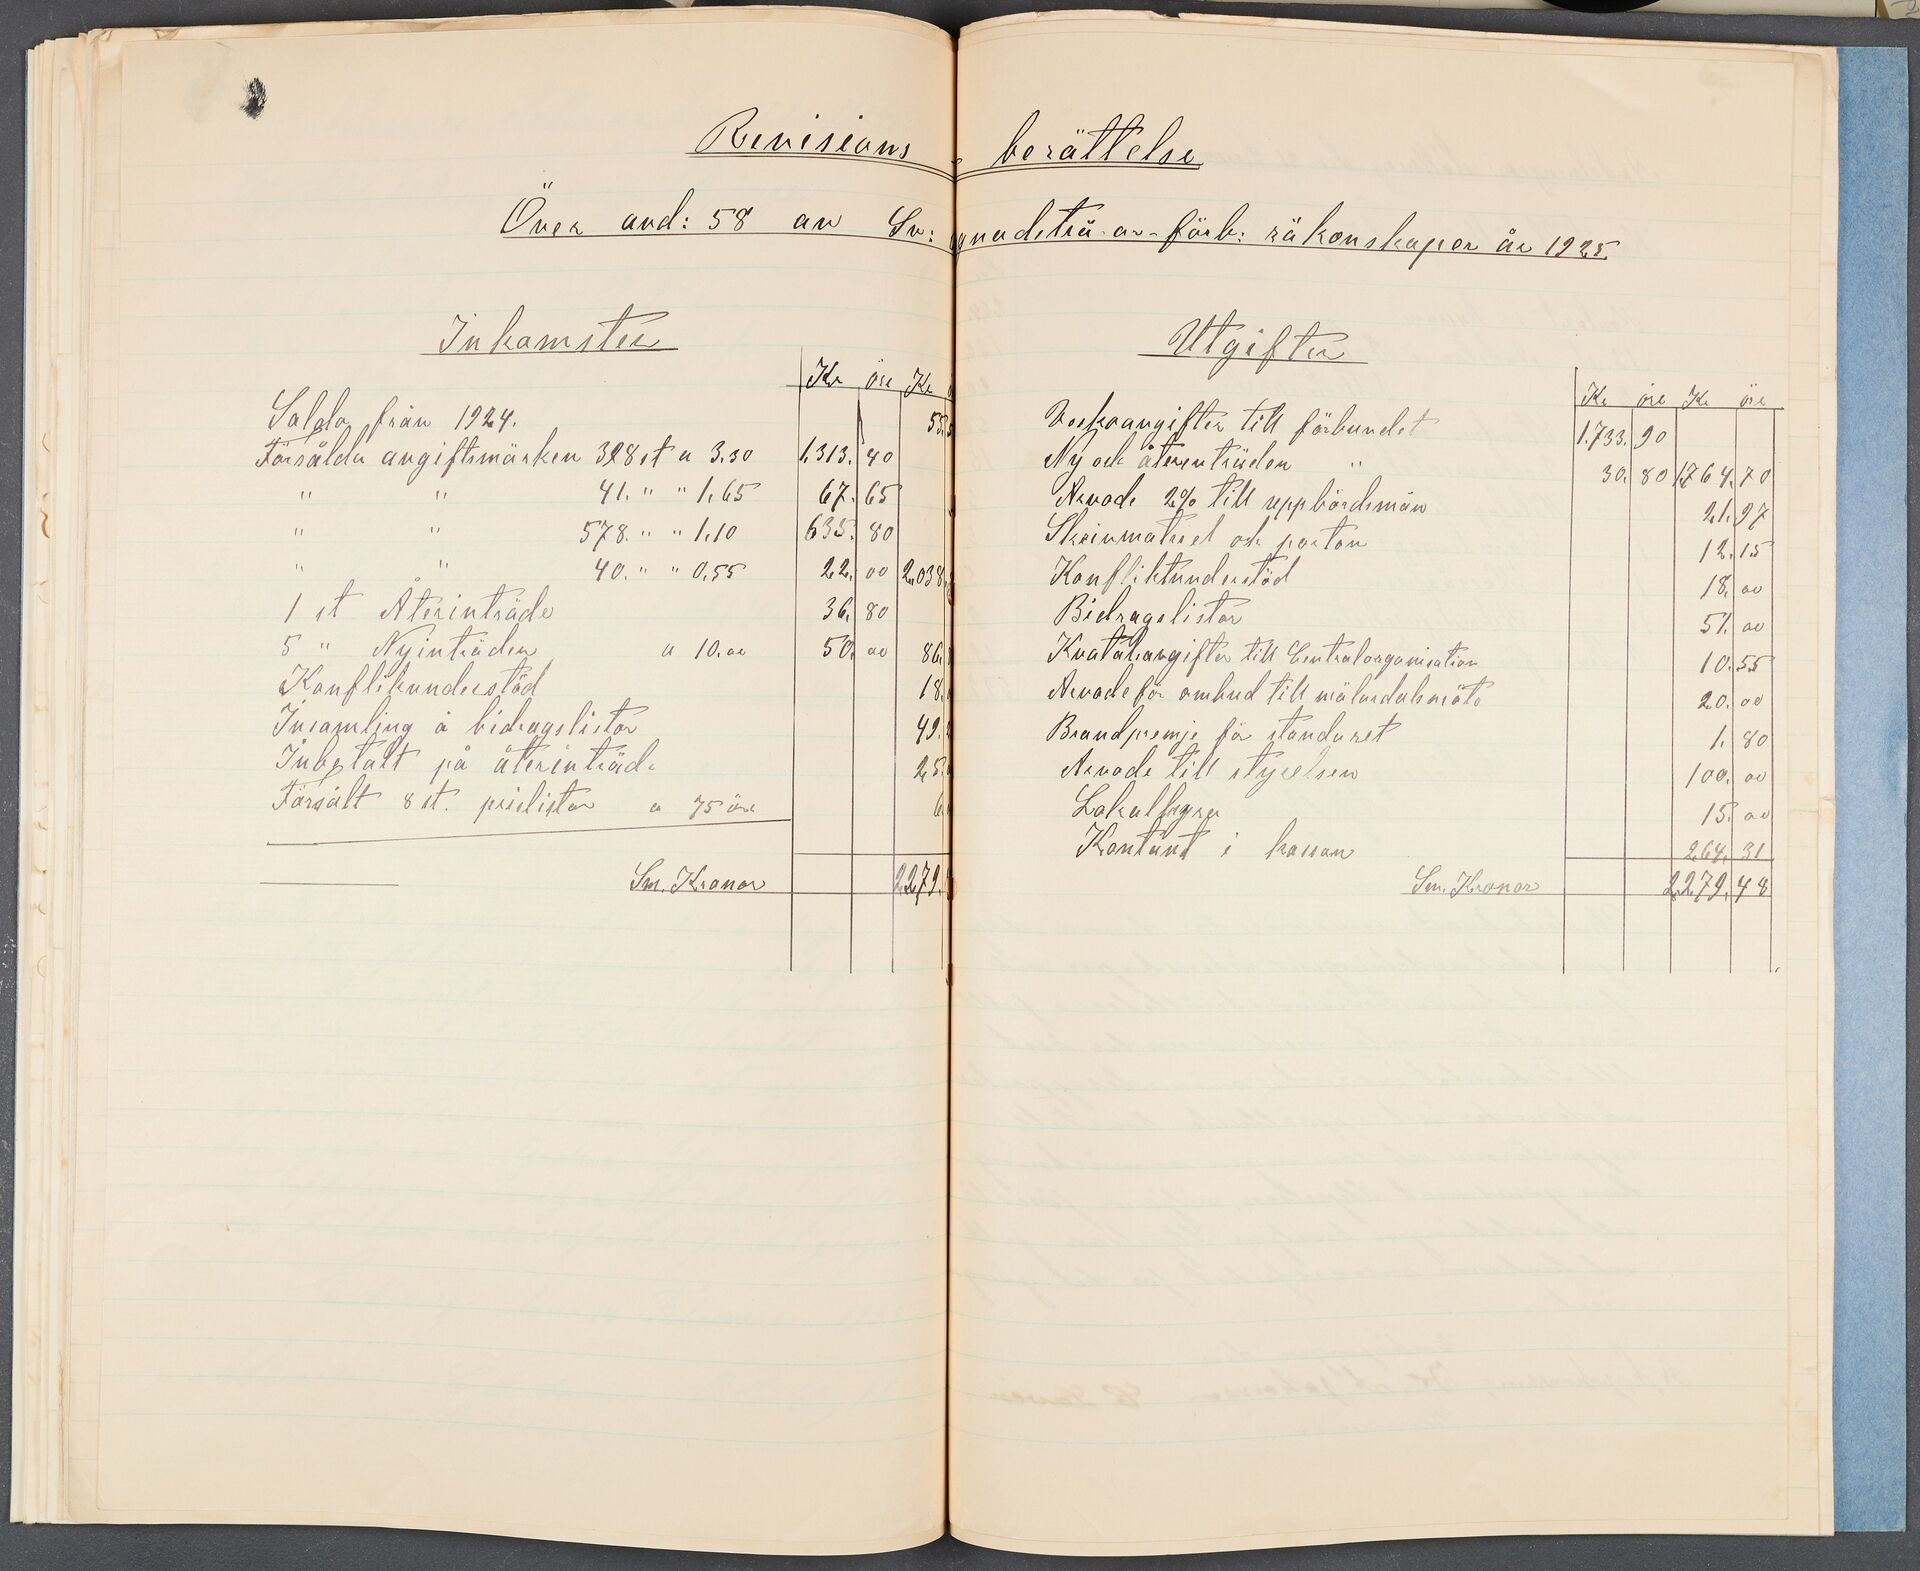 Revisions berättelse
Över avd: 58 av Sv: gnadsträ-ar-förb: räkenskaper år 1925.
Inkomster
Kr öre Kr
Saldo från 1924. 55
Försålda avgiftsmärken 398 st a 3.30 1.313. 40
" " 41. " " 1,65 67. 65
" " 578. " " 1,10 635. 80
" " 40. " " 0,55 22. 00 2,038
1 st Återinträde 36. 80
5 " Nyinträden a 10.00 50. 00 86.
Konfliktunderstöd 18.
Insamling å bidragslistor 49.
Inbetalt på återinträde 25.
Försålt 8 st. prislistor a 75 öre 6
Sm. Kronor 2,279.
Utgifter
Kr öre Kr öre
Veckoavgifter till förbundet 1.733. 90
Ny och återinträden " 30. 80 1,764. 70
Arvode 2% till uppbördsmän 21. 97
Skrivmatriel och porton 12. 15
Konfliktunderstöd 18. 00
Bidragslistor 51. 00
Kvatalsavgifter till Centralorganisation 10. 55
Arvode för ombud till mälardalsmöte 20. 00
Brandpremje för standaret 1. 80
Arvode till styrelsen 100. 00
Lokalhyra 15. 00
Kontant i kassan 264. 31
Sm. Kronor 2,279. 48